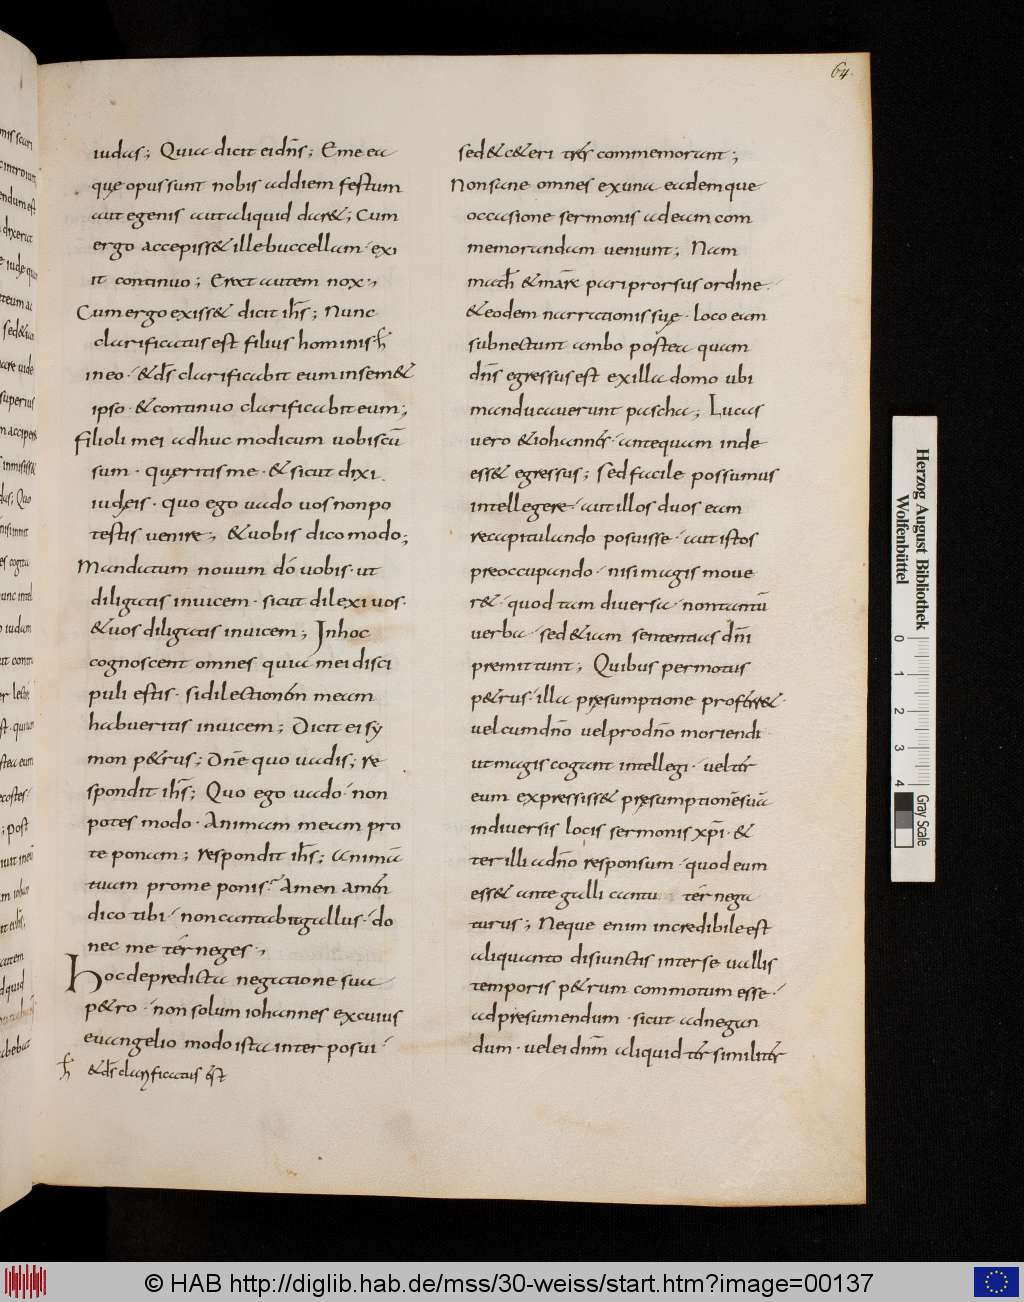 64.
iudas; Quia dicit ei dn̄s; Eme ea
quę opus sunt nobis ad diem festum
aut egenis aut aliquid dar&; Cum
ergo accepiss& ille buccellam · exi
it continuo; Erat autem nox·,
Cum ergo exiss& dicit ih̄s; Nunc
clarificatus est filius hominis·
in eo · & d̄s clarificabit eum in sem&
ipso · & continuo clarificabit eum;
filioli mei adhuc modicum uobiscū
sum · quęritis me · & sicut dixi
iudęis · quo ego uado uos non po
testis uenire, & uobis dico modo;
Mandatum nouum dō uobis · ut
diligatis inuicem · sicut dilexi uos·
& uos diligatis inuicem; In hoc
cognoscent omnes quia mei disci
puli estis · si dilectionem meam
habueritis inuicem; Dicit ei sy
mon p&rus; Dn̄e quo uadis; re
spondit ih̄s; Quo ego uado · non
potes modo · Animam meam pro
te ponam; respondit ih̄s; animā
tuam pro me ponis? Amen amen
dico tibi · non cantabit gallus · do
nec me ter neges·,
Hoc de predicta negatione sua
p&ro · non solum iohannes ex cuius
euangelio modo ista inter posui ·
& d̄s clarificatus est
sed & c&eri tres commemorant;
Non sane omnes ex una eademque
occasione sermonis ad eam com
memorandam ueniunt; Nam
math & marc pari prorsus ordine
& eodem narrationis suę · loco eam
subnectunt ambo postea quam
dn̄s egressus est ex illa domo ubi
manducauerunt pascha; Lucas
uero & iohannes · antequam inde
ess& egressus; sed facile possumus
intellegere · aut illos duos eam
recapitulando posuisse · aut istos
preoccupando · nisi magis moue
r& · quod tam diuersa non tantū
uerba · sed & iam sententias dn̄i
premittunt; Quibus permotus
p&rus · illa pręsumptione proferr&·
uel cum dn̄o uel pro dn̄o moriendi
ut magis cogant intellegi · uel ter
eum expressiss& pręsumptionē suā
in diuersis locis sermonis xp̄i · &
ter illi a dn̄o responsum · quod eum
ess& ante galli cantu ter nega
turus; Neque enim incredibile est
aliquanto disiunctis inter se uallis
temporis p&rum commotum esse ·
ad presumendum · sicut ad negan
dum · uel ei dn̄m aliquid ter similiter
Herzog August Bibliothek
Wolfenbüttel
0 1 2 3 4
Gray Scale
© HAB http://diglib.hab.de/mss/30-weiss/start.htm?image=00137